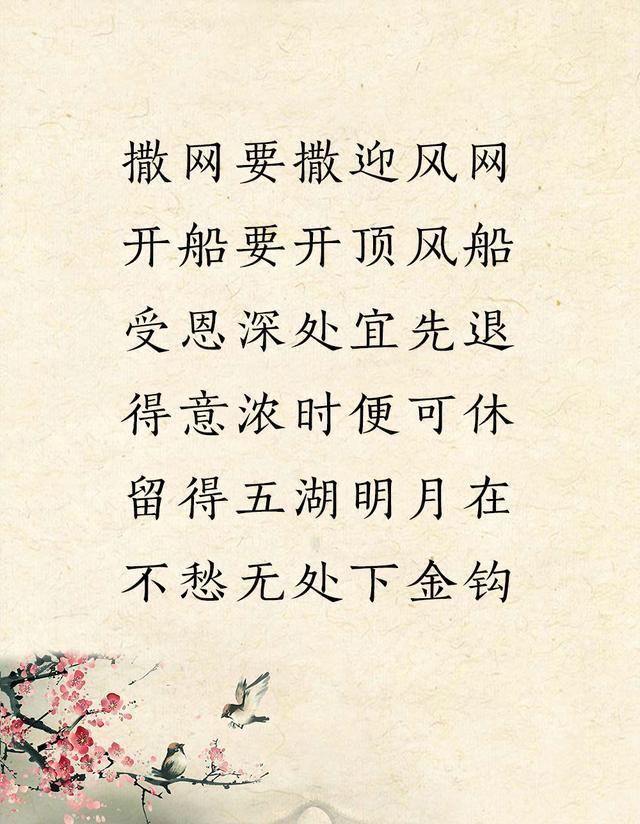 撒网要撒迎风网
开船要开顶风船
受恩深处宜先退
得意浓时便可休
留得五湖明月在
不愁无处下金钩